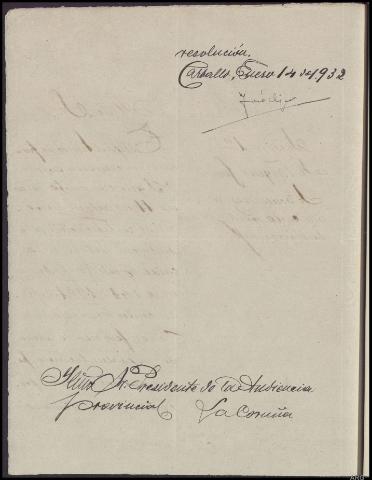 resolución.
Carballo, Enero 14 de 1932
Iltmo Sr. Presidente de la Audiencia
provincial La Coruña